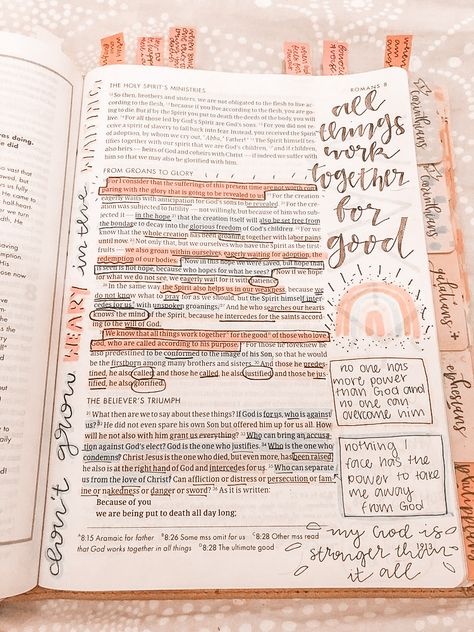 THE HOLY SPIRIT'S MINISTRIES
ROMANS 8
¹² So then, brothers and sisters, we are not obligated to the flesh to live ac-
cording to the flesh, ¹³ because if you live according to the flesh, you are go-
ing to die. But if by the Spirit you put to death the deeds of the body, you will
live. ¹⁴ For all those led by God's Spirit are God's sons. ¹⁵ For you did not re-
ceive a spirit of slavery to fall back into fear. Instead, you received the Spirit
of adoption, by whom we cry out, "Abba, Father!" ¹⁶ The Spirit himself tes-
tifies together with our spirit that we are God's children, ¹⁷ and if children,
also heirs — heirs of God and coheirs with Christ — if indeed we suffer with
him so that we may also be glorified with him.
FROM GROANS TO GLORY
¹⁸ For I consider that the sufferings of this present time are not worth com-
paring with the glory that is going to be revealed to us. ¹⁹ For the creation
eagerly waits with anticipation for God's sons to be revealed. ²⁰ For the cre-
ation was subjected to futility — not willingly, but because of him who sub-
jected it — in the hope ²¹ that the creation itself will also be set free from
the bondage to decay into the glorious freedom of God's children. ²² For we
know that the whole creation has been groaning together with labor pains
until now. ²³ Not only that, but we ourselves who have the Spirit as the first-
fruits — we also groan within ourselves, eagerly waiting for adoption, the
redemption of our bodies. ²⁴ Now in this hope we were saved, but hope that
is seen is not hope, because who hopes for what he sees? ²⁵ Now if we hope
for what we do not see, we eagerly wait for it with patience.
²⁶ In the same way the Spirit also helps us in our weakness, because we
do not know what to pray for as we should, but the Spirit himself inter-
cedes for us with unspoken groanings. ²⁷ And he who searches our hearts
knows the mind of the Spirit, because he intercedes for the saints accord-
ing to the will of God.
²⁸ We know that all things work together for the good of those who love
God, who are called according to his purpose. ²⁹ For those he foreknew he
also predestined to be conformed to the image of his Son, so that he would
be the firstborn among many brothers and sisters. ³⁰ And those he predes-
tined, he also called; and those he called, he also justified; and those he jus-
tified, he also glorified.
THE BELIEVER'S TRIUMPH
³¹ What then are we to say about these things? If God is for us, who is against
us? ³² He did not even spare his own Son but offered him up for us all. How
will he not also with him grant us everything? ³³ Who can bring an accusa-
tion against God's elect? God is the one who justifies. ³⁴ Who is the one who
condemns? Christ Jesus is the one who died, but even more, has been raised;
he also is at the right hand of God and intercedes for us. ³⁵ Who can separate
us from the love of Christ? Can affliction or distress or persecution or fam-
ine or nakedness or danger or sword? ³⁶ As it is written:
Because of you
we are being put to death all day long;
8:15 Aramaic for father 8:26 Some mss omit for us 8:28 Other mss read
that God works together in all things 8:28 The ultimate good
don't grow WEARY in the waiting
all
things
work
together
for
good
no one has
more power
than God and
no one can
overcome him
nothing
I face has the
power to take
me away
from God
my God is
stronger than
it all
galatians +
ephesians